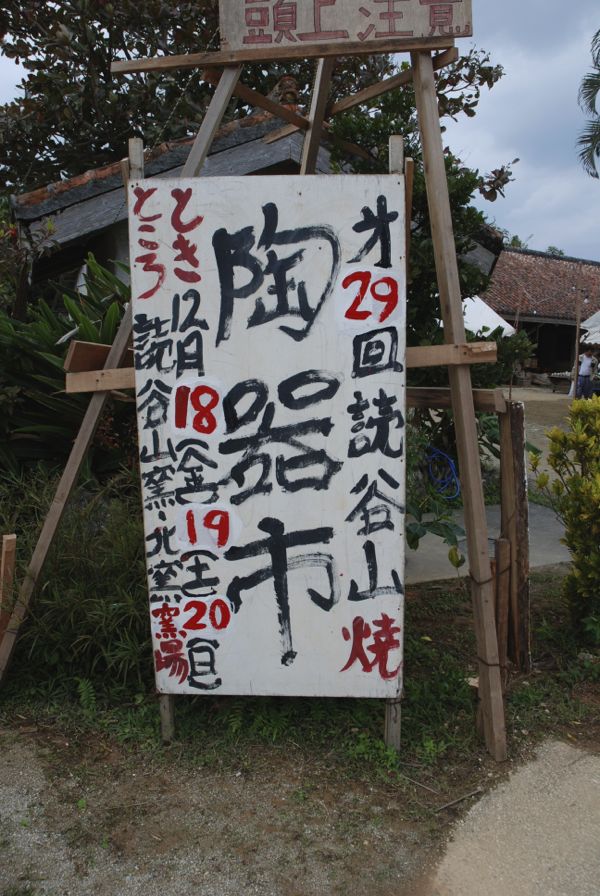 頭上注意
第29回読谷山焼
陶器市
とき
12月18(金)19(土)20(日)
ところ
読谷山窯・北窯窯場